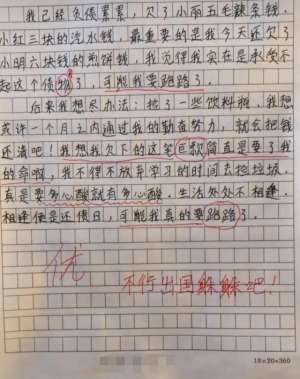 我已经负债累累，欠了小丽五毛辣条钱，
小红三块的汽水钱，最重要的是我今天还欠了
小明六块钱的煎饼钱，我觉得我实在是承受不
起这个债物了，可能我要跑路了。
后来我想尽办法：捡了一些饮料瓶，我想
或许一个月之内通过我的勤奋努力，就会把钱
还清吧！我想我欠下的这笔巨款简直是要了我
的命啊，我不得不放弃学习的时间去捡垃圾，
真是要多心酸就有多心酸。生活处处不相逢，
相逢便是还债日，可能我真的要跑路了。
优
不行出国躲躲吧！
18×20=360